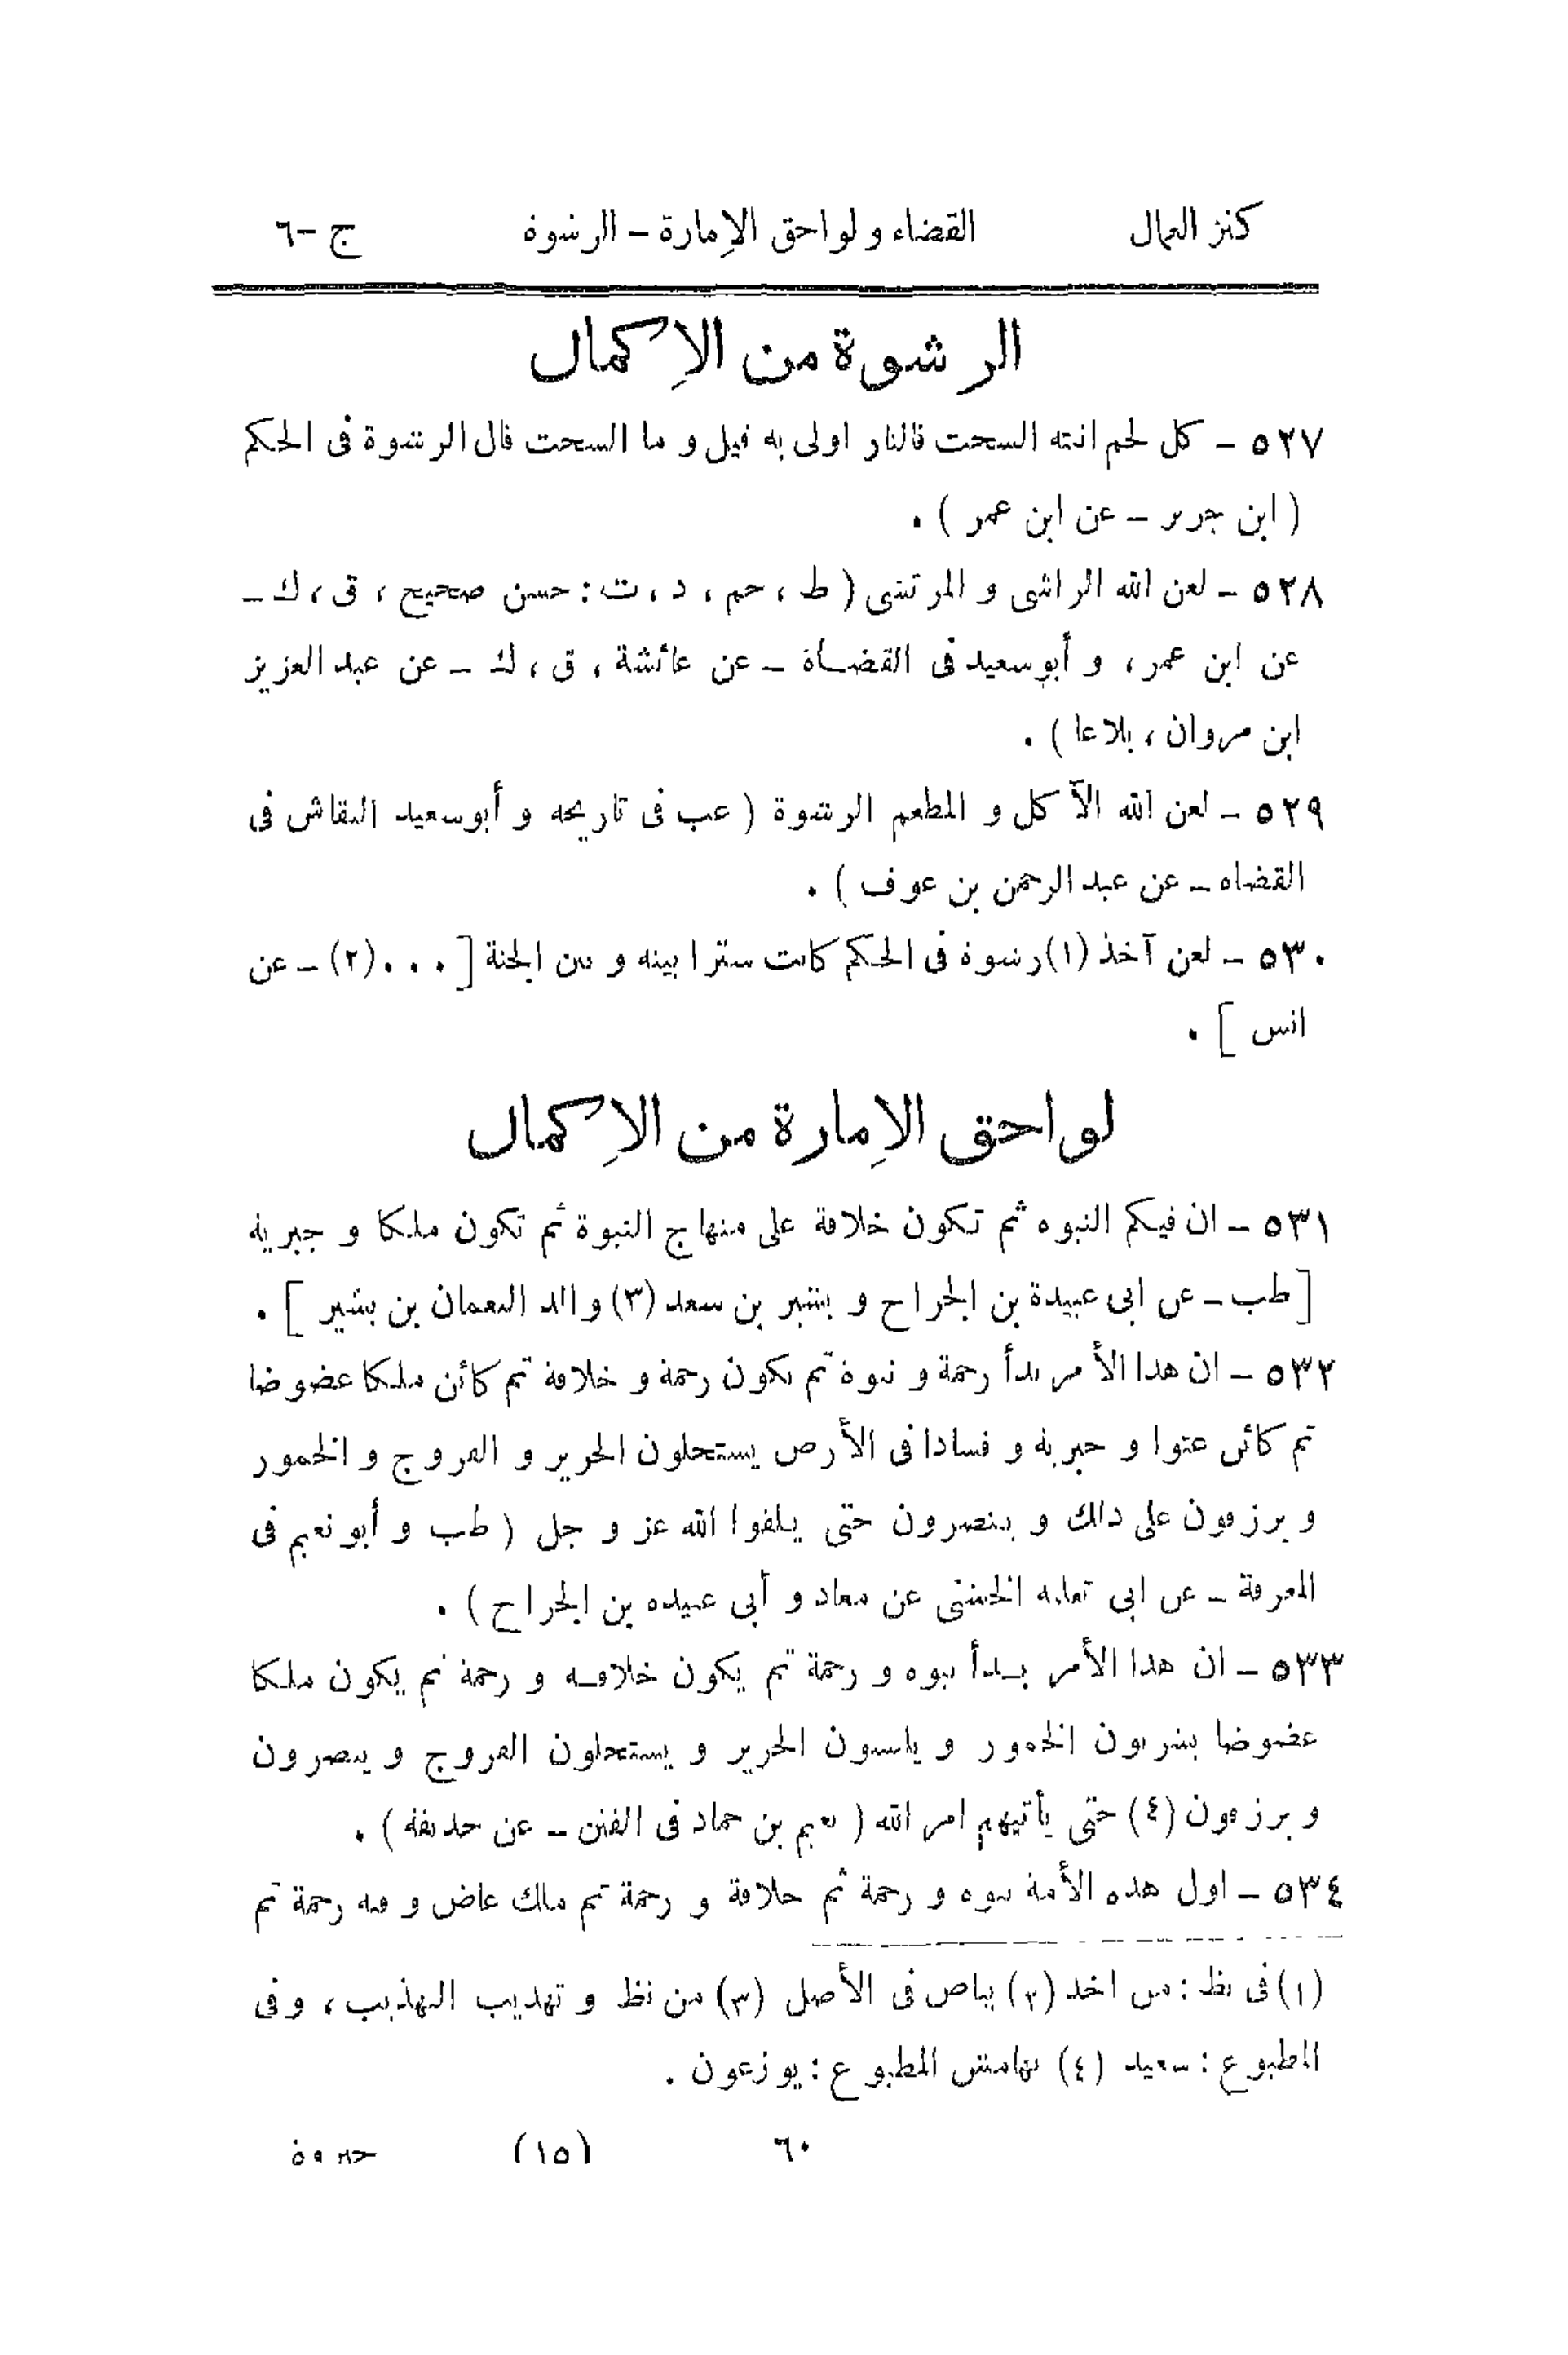 كنز العمال القضاء و لواحق الإمارة – الرشوة ج –٦
الرشوة من الإكمال
٥٢٧ – كل لحم انبته السحت فالنار اولى به قيل و ما السحت قال الرشوة فى الحكم
( ابن جرير – عن ابن عمر ) .
٥٢٨ – لعن الله الراشى و المرتشى ( ط ، حم ، د ، ت : حسن صحيح ، ق ، ك –
عن ابن عمر ، و أبو سعيد فى القضاة – عن عائشة ، ق ، ك – عن عبد العزيز
ابن مروان ، بلاغا ) .
٥٢٩ – لعن الله الآكل و المطعم الرشوة ( عب فى تاريخه و أبو سعيد النقاش فى
القضاه – عن عبد الرحمن بن عوف ) .
٥٣٠ – لعن آخذ (١) رشوة فى الحكم كانت سترا بينه و بين الجنة [ ... (٢) – عن
انس ] .
لواحق الإمارة من الإكمال
٥٣١ – ان فيكم النبوه ثم تكون خلافة على منهاج النبوة ثم تكون ملكا و جبرية
[ طب – عن ابى عبيدة بن الجراح و بشير بن سعد (٣) والد النعمان بن بشير ] .
٥٣٢ – ان هذا الأمر بدأ رحمة و نبوة ثم يكون رحمة و خلافة ثم كائن ملكا عضوضا
ثم كائن عتوا و جبرية و فسادا فى الأرض يستحلون الحرير و الفروج و الخمور
و يرزقون على ذالك و ينصرون حتى يلقوا الله عز و جل ( طب و أبو نعيم فى
المعرفة – عن ابى ثعلبه الخشنى عن معاذ و أبى عبيده بن الجراح ) .
٥٣٣ – ان هذا الأمر بدأ نبوه و رحمة ثم يكون خلافه و رحمة ثم يكون ملكا
عضوضا يشربون الخمور و يلبسون الحرير و يستحلون الفروج و ينصرون
و يرزقون (٤) حتى يأتيهم امر الله ( نعيم بن حماد فى الفتن – عن حذيفة ) .
٥٣٤ – اول هذه الأمة نبوه و رحمة ثم خلافة و رحمة ثم ملك عاض و فيه رحمة ثم
(١) فى نظ : من اخذ (٢) بياض فى الأصل (٣) من نظ و تهذيب التهذيب ، و فى
المطبوع : سعيد (٤) بهامش المطبوع : يوزعون .
٦٠ (١٥) جبروة